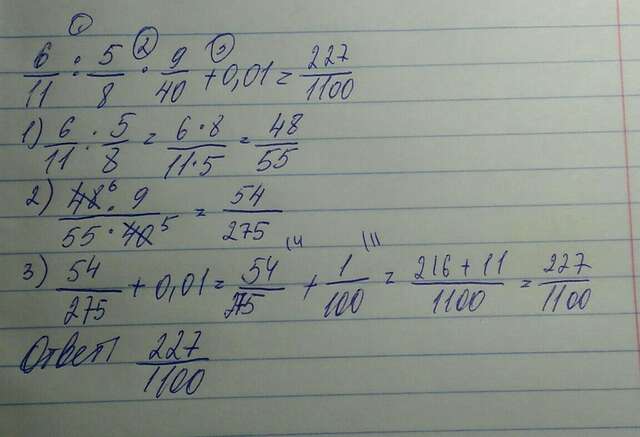 ① ② ③
6/11 : 5/8 · 9/40 + 0,01 = 227/1100
1) 6/11 : 5/8 = 6·8/11·5 = 48/55
2) 48 6 · 9/55 · 40 5 = 54/275
3) 54/275 + 0,01 = 54/275 (4 + 1/100 (11 = 216 + 11/1100 = 227/1100
Ответ 227/1100